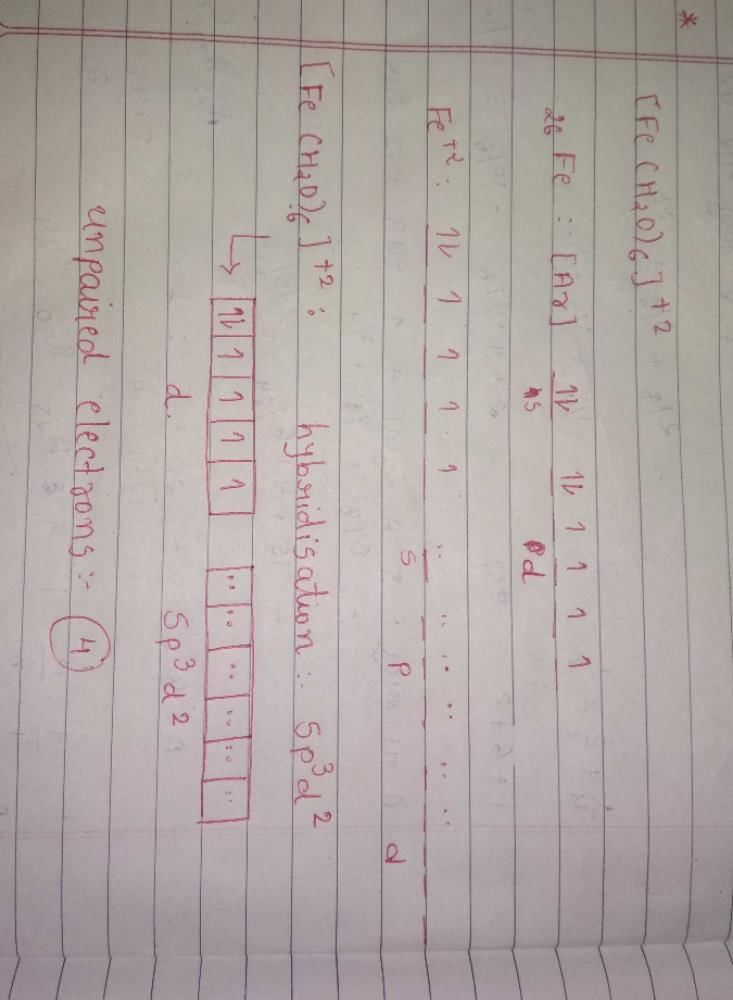 *
[Fe(H2O)6]+2
26Fe : [Ar] ⥮ ⥮ 1 1 1 1
4s d
Fe+2 : ⥮ 1 1 1 1 .. .. .. .. .. ..
s p d
[Fe(H2O)6]+2 : hybridisation :- Sp3d2
↳ ⥮ 1 1 1 1 .. .. .. .. .. ..
d. Sp3d2
unpaired electrons :- 4